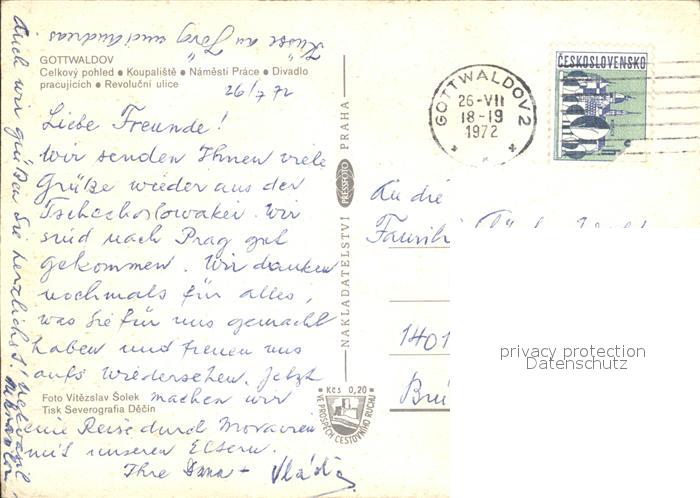 Küsse an Jörg und Andreas
GOTTWALDOV
Celkový pohled ● Koupaliště ● Náměstí Práce ● Divadlo
pracujících ● Revoluční ulice
26/7 72
Liebe Freunde!
Wir senden Ihnen viele
Grüße wieder aus der
Tschechoslowakei. Wir
sind nach Prag gut
gekommen. Wir danken
nochmals für alles,
was Sie für uns gemacht
haben und freuen uns
aufs Wiedersehen. Jetzt
machen wir
eine Reise durch Moravien
mit unseren Eltern.
Ihre Dana + Vláďa
Foto Vítězslav Šolek
Tisk Severografia Děčín
Auch wir grüßen Sie herzlichst!
NAKLADATELSTVÍ PRESSFOTO PRAHA
Kčs 0,20
VE PROSPĚCH CESTOVNÍHO RUCHU
GOTTWALDOV 2
26-VII
18-19
1972
ČESKOSLOVENSKO
An die
1401
privacy protection
Datenschutz